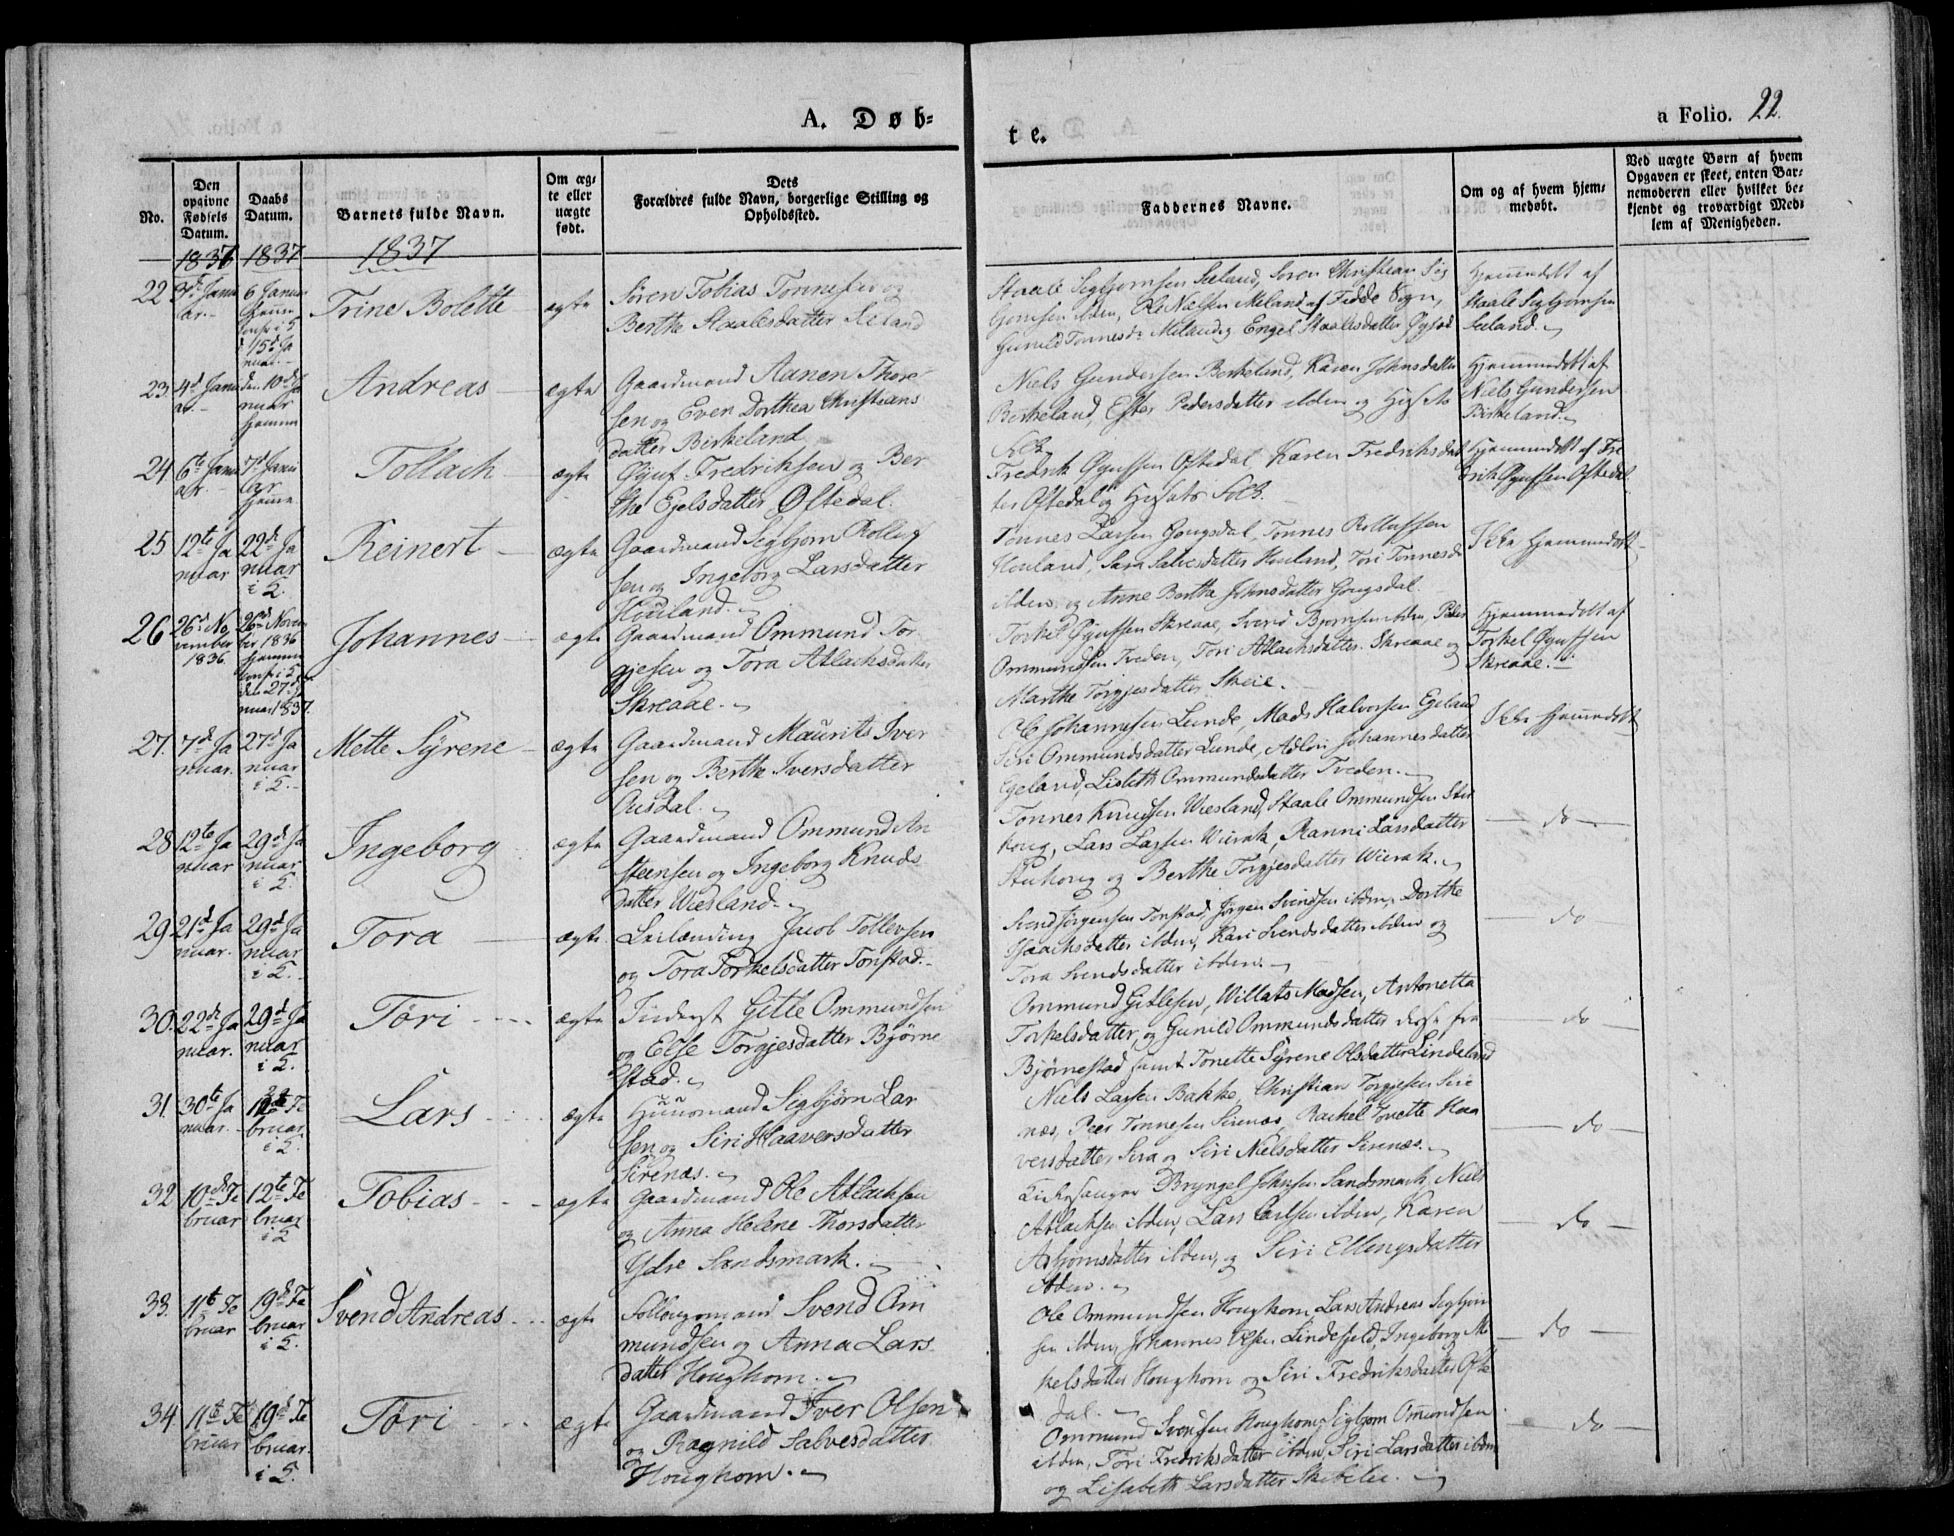 A. Døb-
te.
a Folio. 22.
No.
Den opgivne Fødsels Datum.
Daabs Datum.
Barnets fulde Navn.
Om æg- te eller uægte født.
Dets Forældres fulde Navn, borgerlige Stilling og Opholdssted.
Faddernes Navne.
Om og af hvem hjem- medøbt.
Ved uægte Børn af hvem Opgaven er skeet, enten Bar- nemoderen eller hvilket be- kjendt og troværdigt Med- lem af Menigheden.
1837 1837 1837
22 3d Janu
ar.
6 Januar
hjemme
i K
d 15d Ja
nuar
Trine Bolette
ægte
Søren Tobias Tønnesen og
Berthe Staalesdatter Seland
Staale Sigbjørnsen Seeland, Søren Christian Sig
bjørnsen ibdm, Ole Nilsen Meland af Fedde Sogn,
Gunild Tønnesdr Meland og Engel Staalesdatter
Hjemmedøbt af
Staale Sigbjørnsen
Seeland.
23. 4d Janu
ar.
den 10d Ja
nuar
hjemme
Andreas
ægte
Gaardmand Aanen Thore
sen og Even Dorthea Christians
datter Birkeland
Niels Gundersen Berkeland, Karen Johnsdatter
Berkeland, Ester Pedersdatter ibdem og Huusets
Folk
Hjemmedøbt af
Niels Gundersen
Birkeland.
24 6te Janu
ar.
7d Janu
ar
hjemme
Tollach
ægte
Øjuf Fredriksen og Ber
the Ejelsdatter Øftedal.
Fredrik Øjufsen Øftedal, Karen Fredriksdat
ter Øftedal og Husets Folk.
Hjemmedøbt af Fre
drik Øjufsen Øftedal.
25 12te Ja
nuar
22d Ja
nuar
i K.
Reinert
ægte
Gaardmand Sigbjørn Rollug
sen og Ingeborg Larsdatter
Houland.
Tønnes Larsen Gougsdal, Tønnes Rollufsen
Houland, Sara Salvesdatter Houland, Tøri Tønnesdr
ibdem og Anne Berthe Johnsdatter Gougsdal.
Ikke Hjemmedøbt
26 26d No
vember
1836
26d Novem
ber 1836
hjemme
i K
den 27d Ja
nuar 1837.
Johannes
ægte
Gaardmand Ommund Tor
gjesen og Tora Atlachsdatter
Skreaae.
Torkel Øjufsen Skreaae, Svend Bjørnsen ibdm, Peder
Ommundsen Tveden, Tøri Atlachsdatter Skreaae og
Marthe Torgjesdatter Skeie.
Hjemmedøbt af
Torkel Øjufsen
Skreaae.
27. 7d Ja
nuar.
27d Ja
nuar
i K.
Mette Syrene
ægte
Gaardmand Maurits Iver
sen og Berthe Iversdatter
Ousdal.
Johannesen Lunde, Mads Halvorsen Egeland
Siri Ommundsdatter Lunde, Adlori Johannesdatter
Egeland, Lisbeth Ommundsdatter Tveden.
Ikke Hjemmedøbt
28 12te Ja
nuar
29d Ja
nuar
i K.
Ingeborg
ægte
Gaardmand Ommund An
steensen og Ingeborg Knuds
datter Wiesland.
Tønnes Knudsen Wiesland, Staale Ommundsen Stu
houg, Lars Larsen Wierak, Ranni Larsdatter
Stuhoug og Berthe Torgjesdatter Wierak.
do
29 21d Ja
nuar.
29d Ja
nuar
i K.
Tora
ægte
Leilænding Jacob Tollevsen
og Tora Torkelsdatter Tonstad.
Svend Jørgensen Tonstad, Jørgen Svendsen ibdm, Dorthe
Isaachsdatter ibdem, Kari Svendsdatter ibdem og
Tora Svendsdatter ibdem.
do
30. 22d Ja
nuar.
29d Ja
nuar
i K.
Tøri
ægte
Inderst Gitle Ommundsen
og Else Torgjesdatter Bjørne
stad.
Ommund Gitlesen, Willats Madsen, Antonetta
Torkelsdatter, og Gunild Ommundsdatter disse fra
Bjørnestad samt Tonette Syrene Olsdatter Lindeland
do
31. 30te Ja
nuar.
12te Fe
bruar
i K.
Lars
ægte
Huusmand Sigbjørn Lar
sen og Siri Haaversdatter
Sirenæs.
Niels Larsen Bakke, Christian Torgjesen Sire
næs, Peer Tønnesen Sirenæs, Rachel Tonette Haa
versdatter Sira og Siri Nielsdatter Sirenæs.
do
32 10d Fe
bruar
12te Fe
bruar
i K
Tobias
ægte
Gaardmand Ole Atlachsen
og Anna Helene Thorsdatter
Ydre Sandsmark.
Kirkesanger Bryngel Johnsen Sandsmark, Niels
Atlachsen ibdem, Lars Carlsen ibdem, Karen
Asbjørnsdatter ibdem, og Siri Ellengsdatter
ibdem.
do
33. 11te Fe
bruar
19d Fe
bruar
i K.
Svend Andreas
ægte
Follougsmand Svend Om
mundsen og Anna Lars
datter Houghom.
Ole Ommundsen Houghom, Lars Andreas Sigbjørn
sen ibdem, Johannes Olsen Lindefjeld, Ingeborg Mi
kelsdatter Houghom og Siri Fredriksdatter Ofte
dal.
do
34 11te Fe
bruar
19d Fe
bruar.
i K.
Tøri
ægte
Gaardmand Iver Olsen
og Ragnild Salvesdatter
Houghom.
Ommund Svendsen Houghom, Sigbjørn Omundsen
ibdem, Tøri Fredriksdatter ibdem, Siri Larsdatter ibdm
og Lisabeth Larsdatter Skibelie.
do